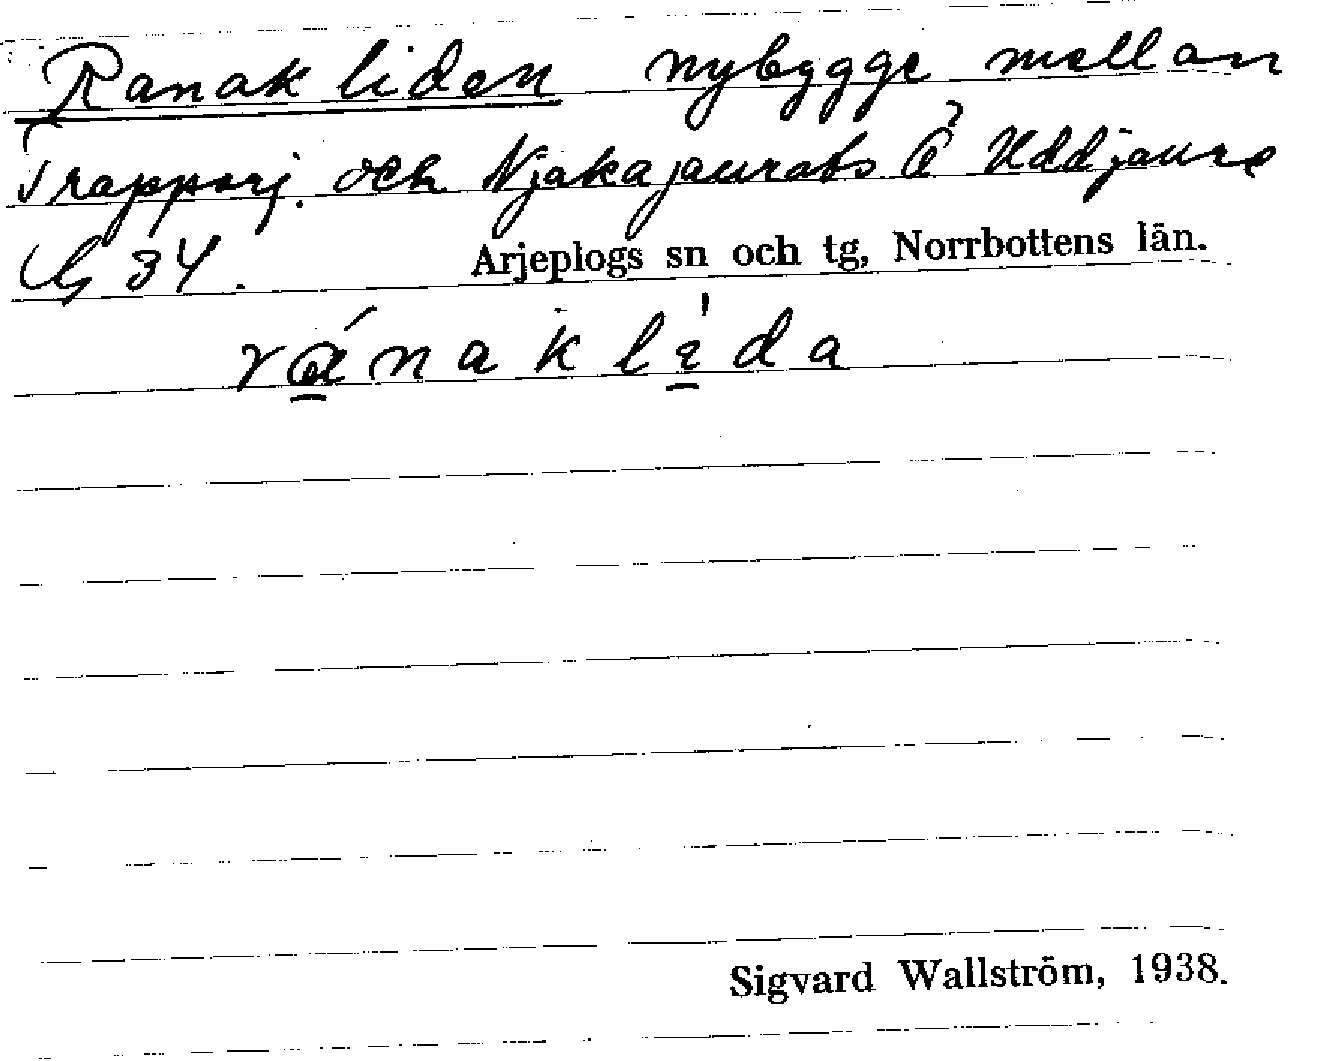 Ranakliden nybygge mellan
Trapparj. och Njakajaurats Ö Uddjaure
G 34. Arjeplogs sn och tg, Norrbottens län.
ránaklida
Sigvard Wallström, 1938.